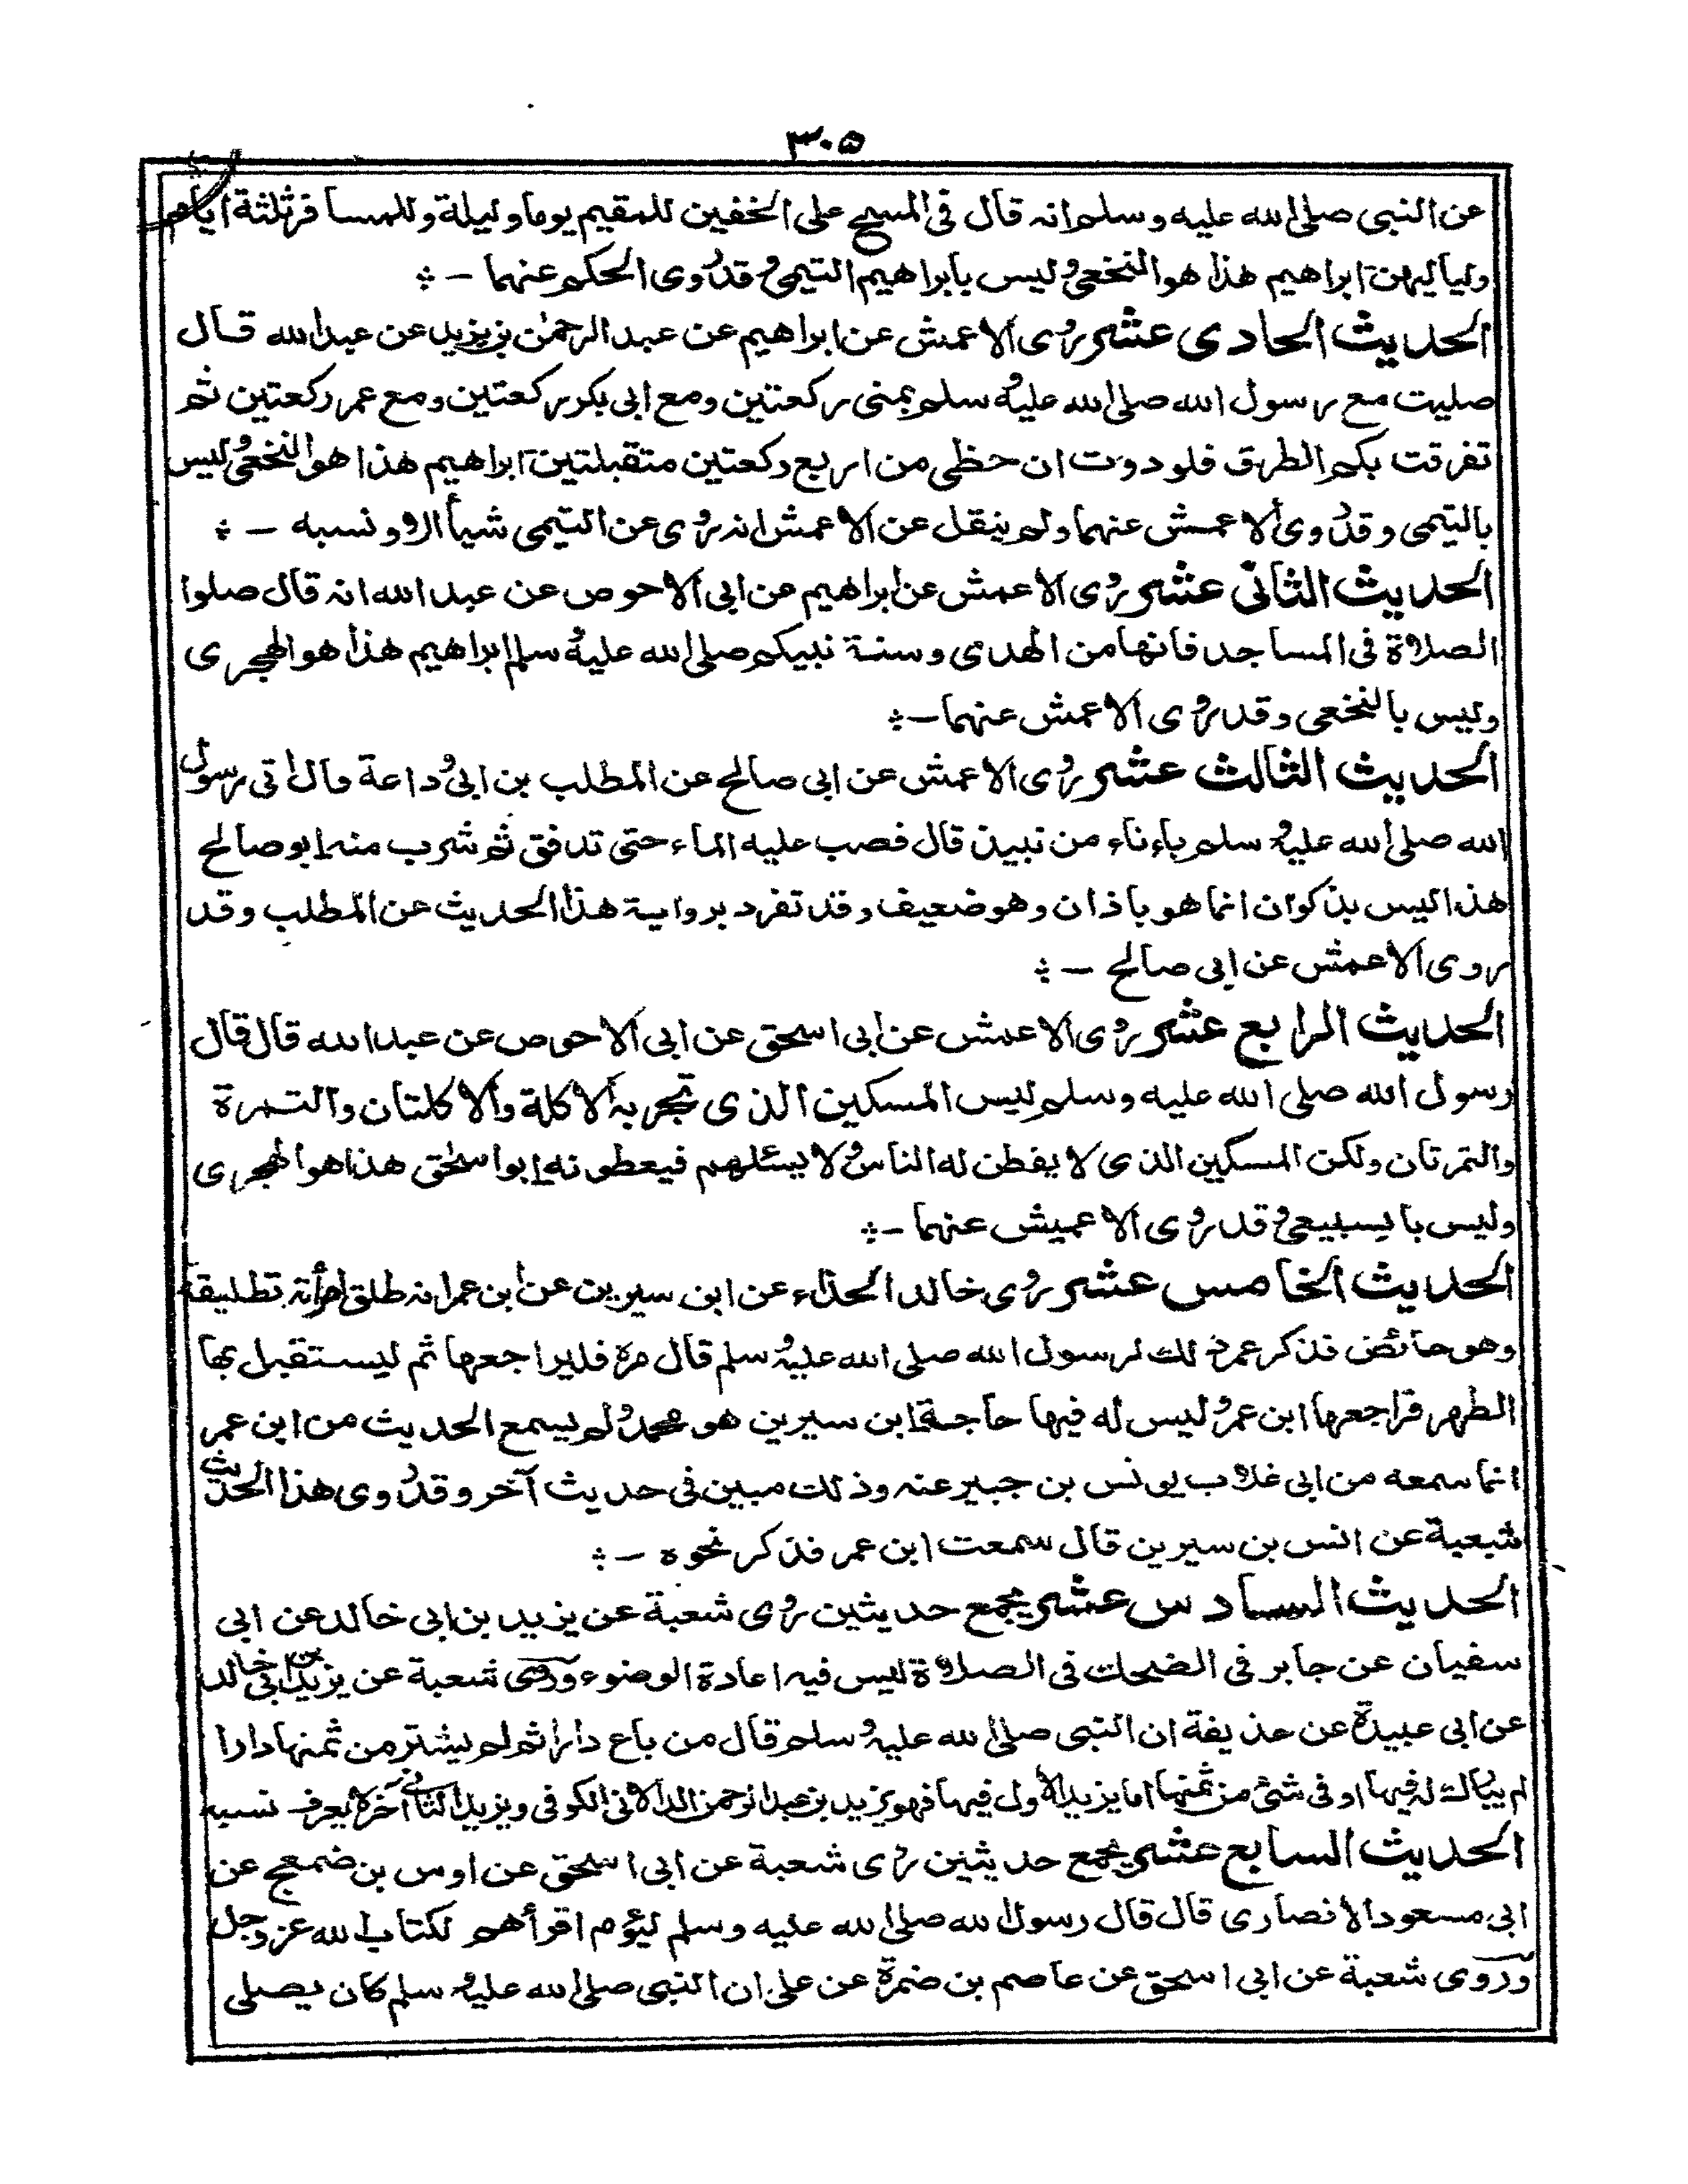 ۳۰۵
عن النبى صلى الله عليه وسلم انه قال فى المسح على الخفين للمقيم يوما وليلة وللمسافر ثلثة ايام
ولياليهن ابراهيم هذا هو النخعى وليس بابراهيم التيمى وقد روى الحكم عنهما - ؞
الحديث الحادى عشر روى الاعمش عن ابراهيم عن عبد الرحمٰن بن يزيد عن عبد الله قال
صليت مع رسول الله صلى الله عليه وسلم بمنى ركعتين ومع ابى بكر ركعتين ومع عمر ركعتين ثم
تفرقت بكم الطرق فلوددت ان حظى من اربع ركعتين متقبلتين ابراهيم هذا هو النخعى وليس
بالتيمى وقد روى الاعمش عنهما ولم ينقل عن الاعمش انه روى عن التيمى شيأ الاو نسبه - ؞
الحديث الثانى عشر روى الاعمش عن ابراهيم عن ابى الاحوص عن عبد الله انه قال صلوا
الصلاة فى المساجد فانها من الهدى وسنة نبيكم صلى الله عليه وسلم ابراهيم هذا هو الهجرى
وليس بالنخعى وقد روى الاعمش عنهما - ؞
الحديث الثالث عشر روى الاعمش عن ابى صالح عن المطلب بن ابى وداعة قال اتى رسول
الله صلى الله عليه وسلم باءناء من نبيذ قال فصب عليه الماء حتى تدفق ثم شرب منه ابو صالح
هذا ليس بذكوان انما هو باذان وهو ضعيف وقد تفرد برواية هذا الحديث عن المطلب وقد
روى الاعمش عن ابى صالح - ؞
الحديث الرابع عشر روى الاعمش عن ابى اسحق عن ابى الاحوص عن عبد الله قال قال
رسول الله صلى الله عليه وسلم ليس المسكين الذى تجر به الاكلة والاكلتان والتمرة
والتمرتان ولكن المسكين الذى لا يفطن له الناس ولا يسئلهم فيعطونه ابوا سحٰق هذا هوا لهجرى
وليس بالسبيعى وقد روى الاعميش عنهما - ؞
الحديث الخامس عشر روى خالد الحذاء عن ابن سيرين عن ابن عمر انه طلق امرأته تطليقة
وهو حائض فذكر عمر ذلك لرسول الله صلى الله عليه وسلم قال مره فليراجعها ثم ليستقبل بها
الطهر فراجعها ابن عمر وليس له فيها حاجة ابن سيرين هو محمد ولم يسمع الحديث من ابن عمر
انما سمعه من ابى غلاب يونس بن جبير عنه وذلك مبين فى حديث آخر وقد روى هذا الحديث
شعبة عن انس بن سيرين قال سمعت ابن عمر فذكر نحوه - ؞
الحديث السادس عشر يجمع حديثين روى شعبة عن يزيد بن ابى خالد عن ابى
سفيان عن جابر فى الضحك فى الصلاة ليس فيه اعادة الوضوء وروى شعبة عن يزيد بن ابى خالد
عن ابى عبيدة عن حذيفة ان النبى صلى الله عليه وسلم قال من باع دارا ثم لم يشتر من ثمنها دارا
لم يبارك له فيها او فى شئ من ثمنها اما يزيد الاول فيها فهو يزيد بن عبد الرحمن الدالانى الكوفى ويزيد الثانى آخر لا يعرف نسبه
الحديث السابع عشر يجمع حديثين روى شعبة عن ابى اسحق عن اوس بن ضمعج عن
ابى مسعود الانصارى قال قال رسول الله صلى الله عليه وسلم ليؤم اقرأهم لكتاب الله عز وجل
وروى شعبة عن ابى اسحق عن عاصم بن ضمرة عن على ان النبى صلى الله عليه وسلم كان يصلى